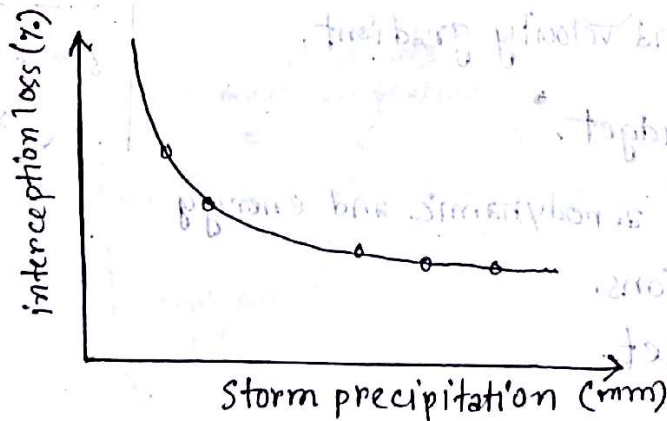 interception loss (%)
Storm precipitation (mm)